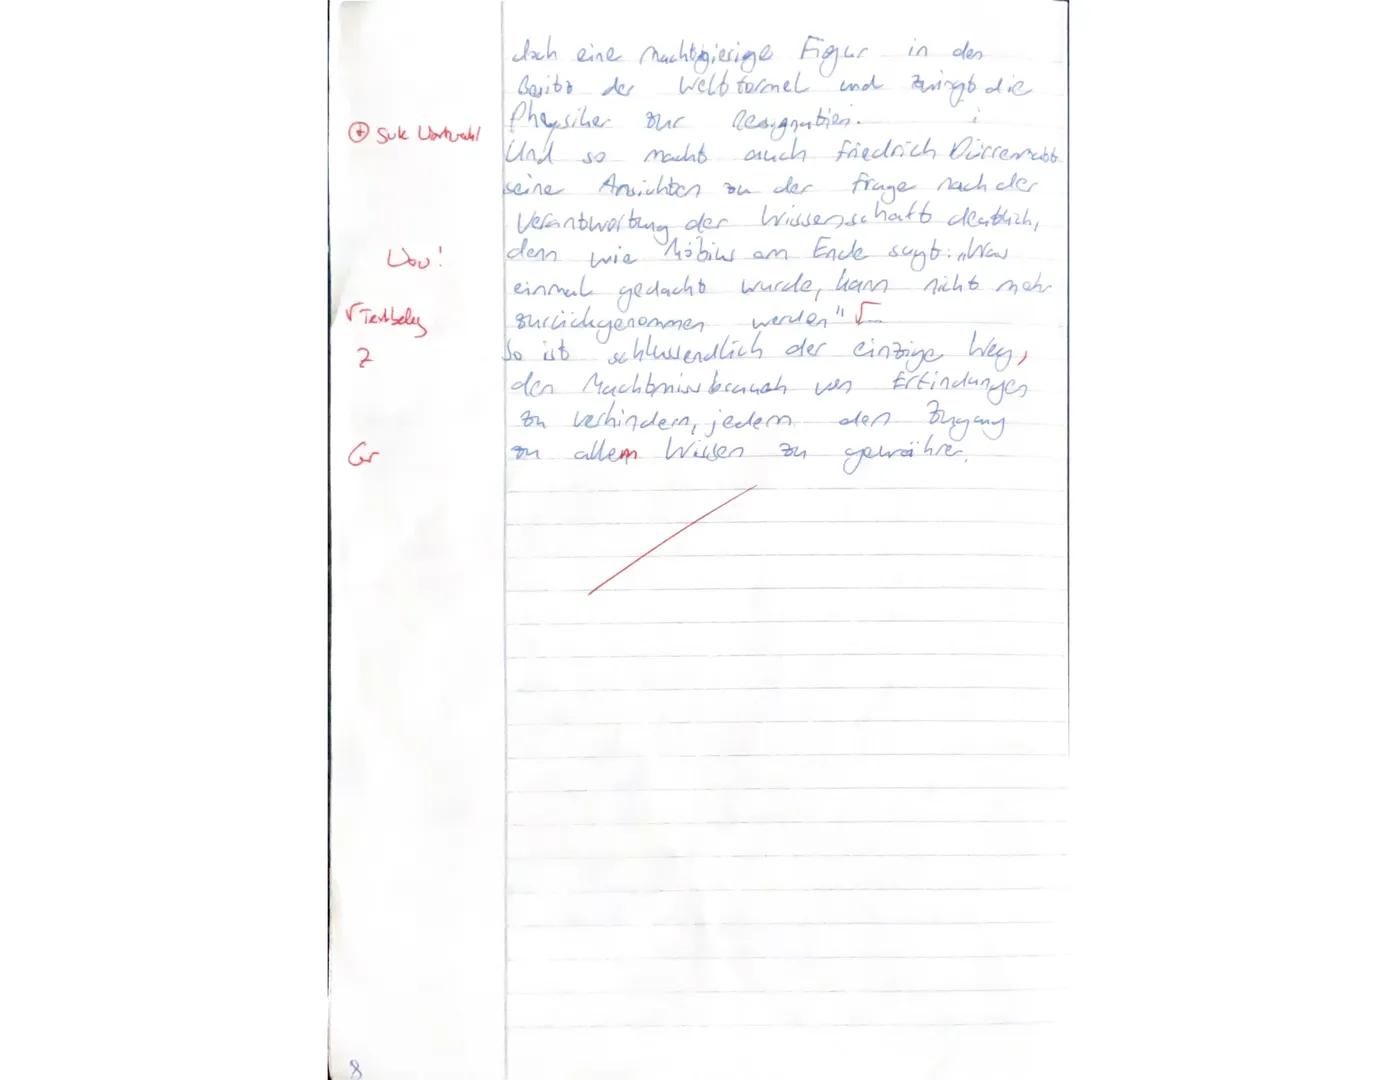 doch eine machtgierige Figur in den
Besitz der Weltformel und zwingt die
⊕ gute Wortwahl Physiker zur Resignation.
Und so macht auch Friedrich Dürrenmatt
seine Ansichten zu der Frage nach der
Verantwortung der Wissenschaft deutlich,
Wow! denn wie Möbius am Ende sagt: „Was
einmal gedacht wurde, kann nicht mehr
√ Textbeleg zurückgenommen werden" √
Z So ist schlussendlich der einzige Weg,
den Machtmissbrauch von Erfindungen
zu verhindern, jedem den Zugang
Gr zu allem Wissen zu gewähren.
8